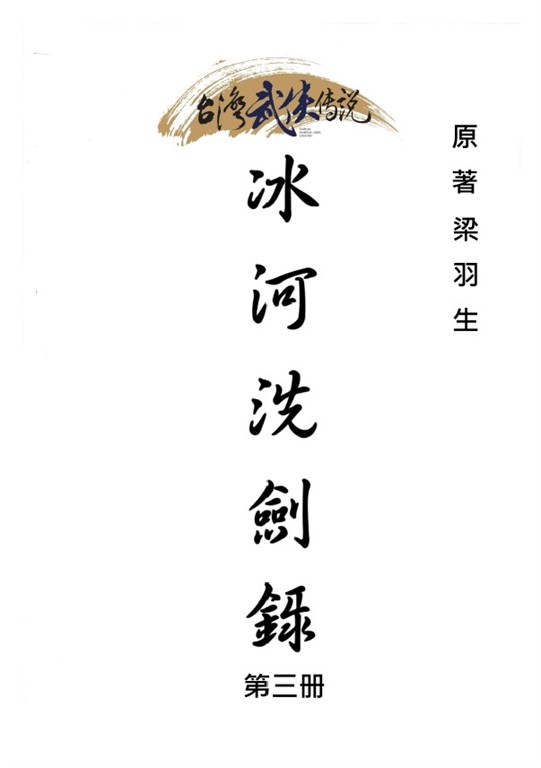 台灣武俠傳説
原著梁羽生
冰河洗劍錄
第三册